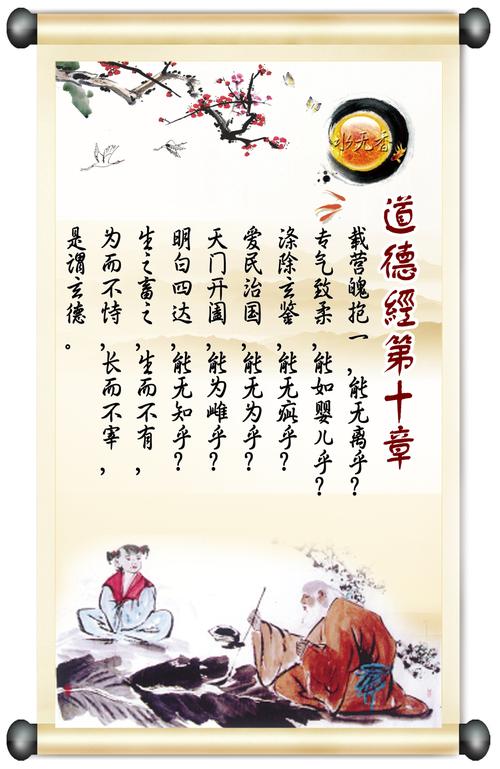 水无香
道德經第十章
载营魄抱一，能无离乎？
专气致柔，能如婴儿乎？
涤除玄鉴，能无疵乎？
爱民治国，能无为乎？
天门开阖，能为雌乎？
明白四达，能无知乎？
生之畜之，生而不有，
为而不恃，长而不宰，
是谓玄德。